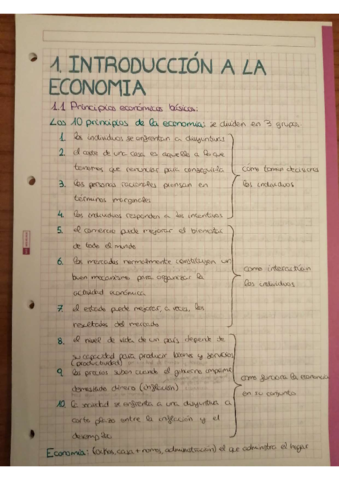 1. INTRODUCCIÓN A LA
ECONOMIA
1.1 Principios económicos básicos:
Los 10 principios de la economía: se dividen en 3 grupos
1. los individuos se enfrentan a disyuntivas
2. el coste de una cosa es aquello a lo que
tenemos que renunciar para conseguirla
como toman decisiones
los individuos
3. las personas racionales piensan en
términos marginales
4. los individuos responden a los incentivos
5. el comercio puede mejorar el bienestar
de todo el mundo
6. los mercados normalmente constituyen un
buen mecanismo para organizar la
actividad económica
como interactúan
los individuos
7. el estado puede mejorar, a veces, los
resultados del mercado
8. el nivel de vida de un país depende de
su capacidad para producir bienes y servicios
(productividad)
9. los precios suben cuando el gobierno imprime
demasiado dinero (inflación)
como funciona la economía
en su conjunto
10. la sociedad se enfrenta a una disyuntiva a
corto plazo entre la inflación y el
desempleo
Economía: (oikos, casa + nomos, administración) el que administra el hogar